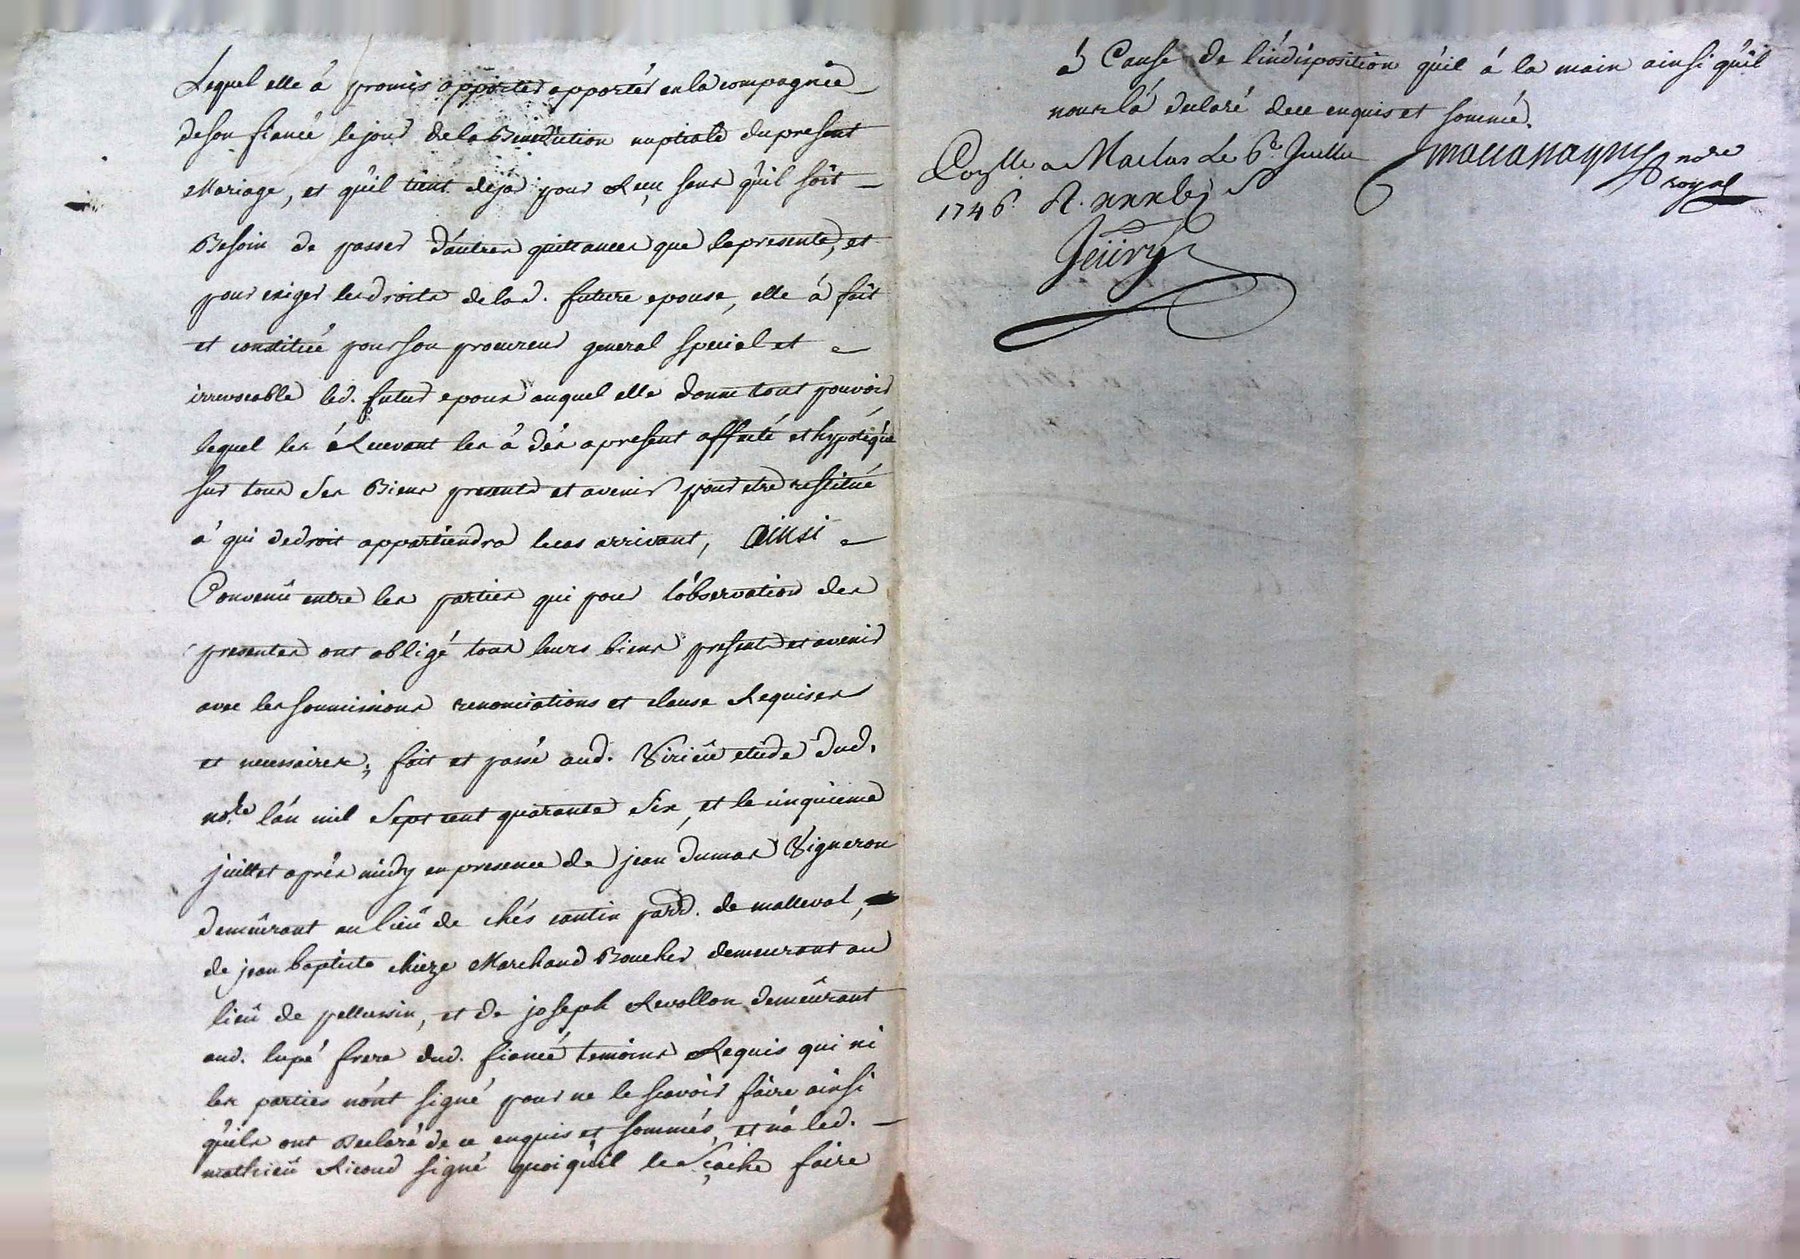 Lequel elle á promis apporter apporter en la compagnie
de son fiancé le jour de la Benediction nuptiale du present
Mariage, et qu'il tient deja pour Reçu sans qu'il soit
Besoin de passer d'autres quittances que la presente, et
pour exiger les droits de lad. future epouse, elle á fait
et constitué pour son procureur general special et
irrevocable led. futur epoux auquel elle donne tout pouvoir
lequel les Recevant les á dés a present affecté et hypotéqué
sur tous ses Biens presents et avenir pour etre restitué
á qui de droit appartiendra le cas arrivant, ainsi
Convenû entre les parties qui pour l'observation des
presentes ont obligé tous leurs biens presents et avenir
avec les soumissions renonciations et clause Requises
et necessaires; fait et passé aud. Virieû etude dud.
nore. l'an mil sept cent quarante six, et le cinquieme
juillet aprés midy en presence de jean dumas Vigneron
demeûrant au lieû de chés contin parr. de malleval,
de jean baptiste chieze Marchand Boucher demeurant au
lieû de pellussin, et de joseph Revollon demeûrant
aud. lupé frere dud. fiancé temoins Requis qui ni
les parties n'ont signé pour ne le scavoir faire ainsi
qu'ils ont Declaré de ce enquis et sommés, et n'a led.
mathieû Ricoud signé quoi qu'il le sçache faire
á Cause de l'indisposition qu'il á la main ainsi qu'il
nous l'á declaré de ce enquis et sommé.
Conlle a Maclas Le 6e Juillet
1746. R.
nore
royal